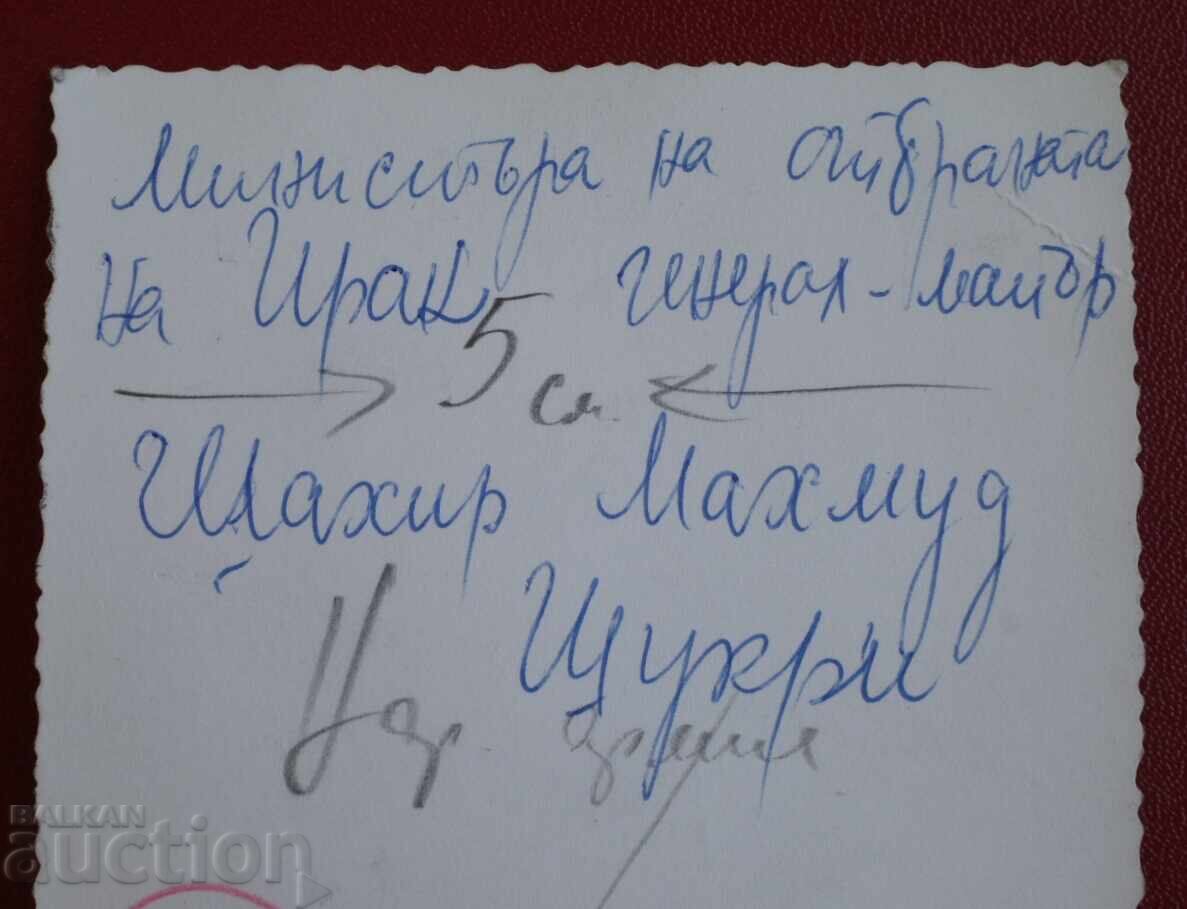 Министъра на отбраната
на Ирак генерал-майър
→ 5 см. ←
Шахир Махмуд
Щукри
Нар. армия
BALKAN
auction